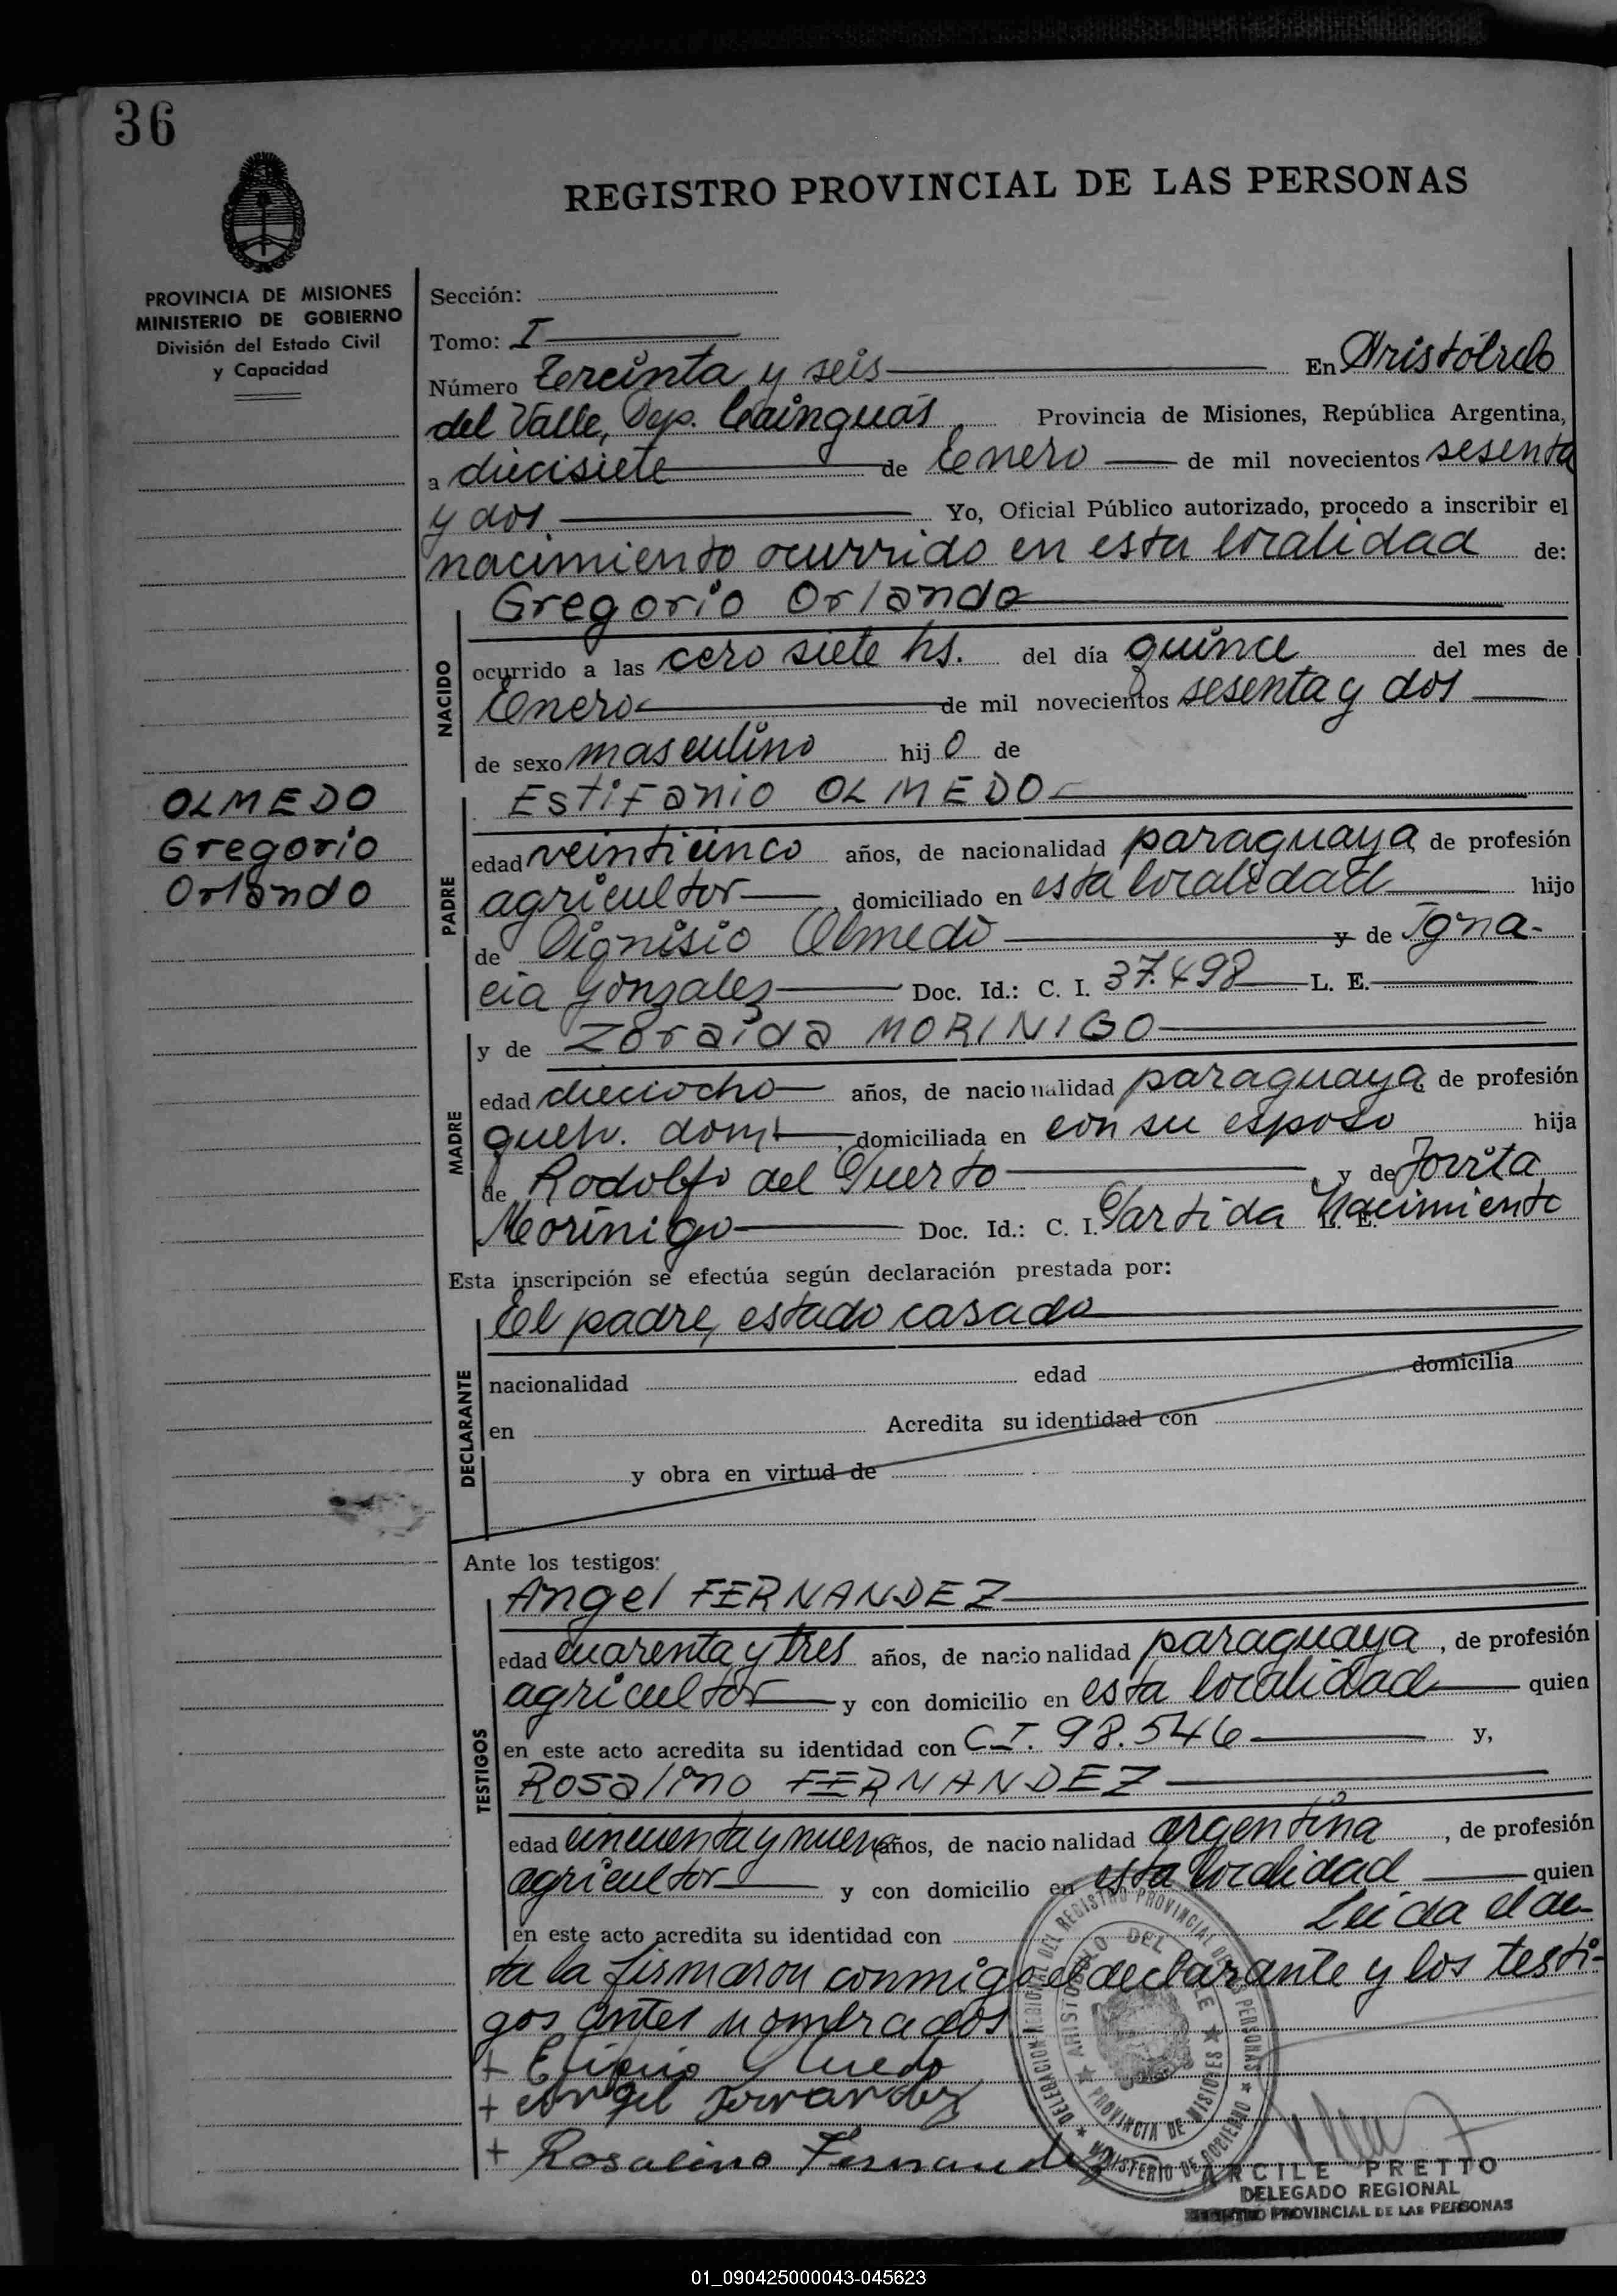 36
REGISTRO PROVINCIAL DE LAS PERSONAS
PROVINCIA DE MISIONES
MINISTERIO DE GOBIERNO
División del Estado Civil
y Capacidad
Sección:
Tomo: I
Número Tereinta y seis En Aristóbulo
del Valle, Dep. Cainguás Provincia de Misiones, República Argentina,
a diecisiete de Enero de mil novecientos sesenta
y dos Yo, Oficial Público autorizado, procedo a inscribir el
nacimiento ocurrido en esta localidad de:
NACIDO
Gregorio Orlando
ocurrido a las cero siete hs. del día quince del mes de
Enero de mil novecientos sesenta y dos
de sexo masculino hij o de
OLMEDO
Gregorio
Orlando
PADRE
Estifanio OLMEDO
edad veinticinco años, de nacionalidad paraguaya de profesión
agricultor, domiciliado en esta localidad hijo
de Dionisio Olmedo y de Igna-
cia Gonzalez Doc. Id.: C. I. 37.498 L. E.
MADRE
y de Zoraida MORINIGO
edad dieciocho años, de nacionalidad paraguaya de profesión
queh. dom., domiciliada en con su esposo hija
de Rodolfo del Puerto, y de Jovita
Morínigo Doc. Id.: C. I. Partida Nacimiento L. E.
Esta inscripción se efectúa según declaración prestada por:
DECLARANTE
El padre, estado casado
nacionalidad edad domicilia
en Acredita su identidad con
y obra en virtud de
Ante los testigos:
TESTIGOS
Angel FERNANDEZ
edad cuarenta y tres años, de nacionalidad paraguaya, de profesión
agricultor y con domicilio en esta localidad quien
en este acto acredita su identidad con C.I. 98.546 y,
Rosalino FERNANDEZ
edad cincuenta y nueve años, de nacionalidad argentina, de profesión
agricultor y con domicilio en esta localidad quien
en este acto acredita su identidad con Leida el ac-
ta la firmaron conmigo el declarante y los testi-
gos antes nombrados
+
+ Angel Fernandez
+ Rosalino Fernandez
DELEGACION REGIONAL DEL REGISTRO PROVINCIAL DE LAS PERSONAS ★ MINISTERIO DE GOBIERNO ★
ARISTOBULO DEL VALLE ★ PROVINCIA DE MISIONES ★
ARCILE PRETTO
DELEGADO REGIONAL
REGISTRO PROVINCIAL DE LAS PERSONAS
01_090425000043-045623